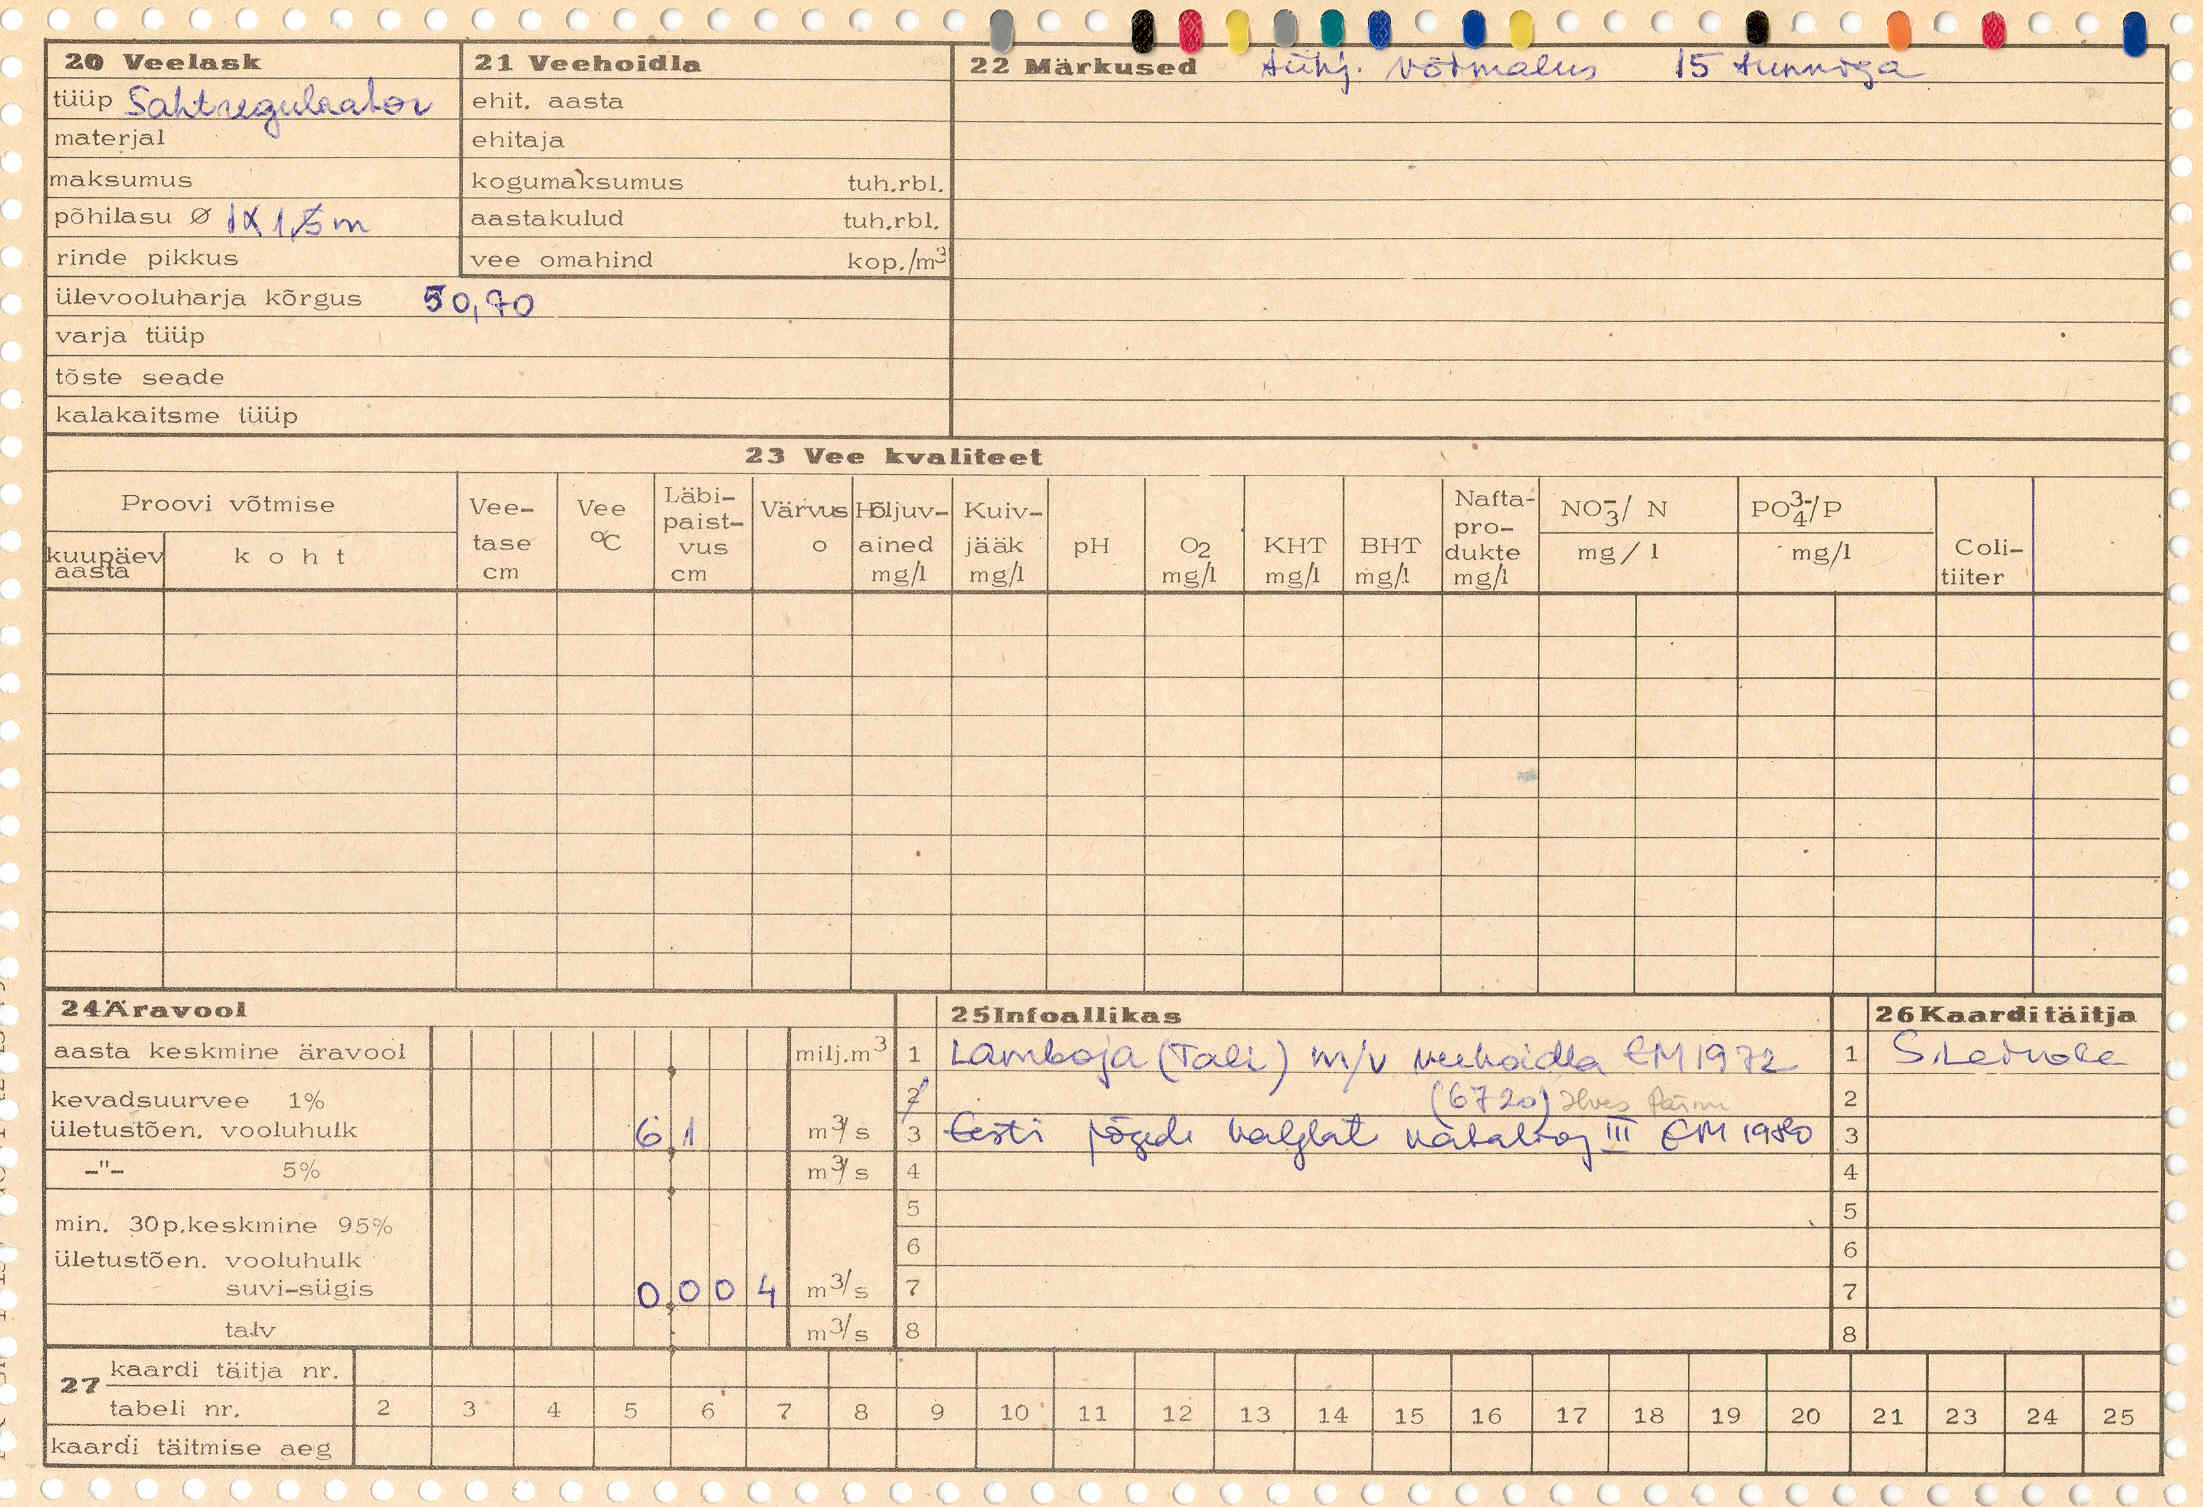 20 Veelask
tüüp Sahtregulaator
materjal
maksumus
põhilasu Ø 1X1,5m
rinde pikkus
ülevooluharja kõrgus 50,70
varja tüüp
tõste seade
kalakaitsme tüüp
21 Veehoidla
ehit. aasta
ehitaja
kogumaksumus tuh.rbl.
aastakulud tuh.rbl.
vee omahind kop./m³
22 Märkused tühj. võimalus 15 tunniga
23 Vee kvaliteet
Proovi võtmise
kuupäev aasta
koht
Vee-tase cm
Vee °C
Läbi-paist-vus cm
Värvus o
Hõljuv-ained mg/l
Kuiv-jääk mg/l
pH
O2 mg/l
KHT mg/l
BHT mg/l
Nafta-pro-dukte mg/l
NO₃⁻/ N mg/l
PO₄³⁻/P mg/l
Coli-tiiter
24 Äravool
aasta keskmine äravool milj.m³
kevadsuurvee 1%
ületustõen. vooluhulk 6 1 m³/s
-"- 5% m³/s
min. 30p.keskmine 95%
ületustõen. vooluhulk
suvi-sügis 0 0 0 4 m³/s
talv m³/s
25 Infoallikas
1 Lamboja (Tali) m/v veehoidla EM 1972
2 (6720) Ilves Pärnu
3 Eesti jõgede valglat kataloog III EM 1980
4
5
6
7
8
26 Kaarditäitja
1 S. Leinola
2
3
4
5
6
7
8
27 kaardi täitja nr.
tabeli nr. 2 3 4 5 6 7 8 9 10 11 12 13 14 15 16 17 18 19 20 21 23 24 25
kaardi täitmise aeg